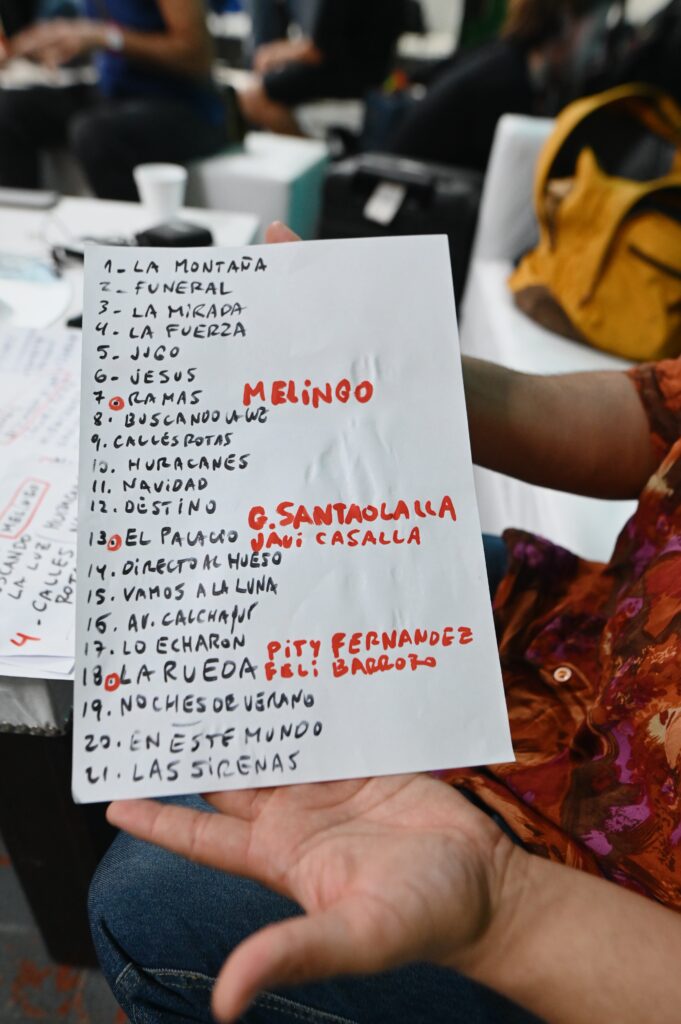 1- LA MONTAÑA
2- FUNERAL
3- LA MIRADA
4- LA FUERZA
5- JUGO
6- JESUS
7 RAMAS MELINGO
8- BUSCANDO LA LUZ
9. CALLES ROTAS
10. HURACANES
11. NAVIDAD
12. DESTINO
G. SANTAOLALLA
13. EL PALACIO JAVI CASALLA
14. DIRECTO AL HUESO
15. VAMOS A LA LUNA
16. AV. CALCHAQUI
17. LO ECHARON PITY FERNANDEZ
18. LA RUEDA FELI BARROZO
19. NOCHES DE VERANO
20. EN ESTE MUNDO
21. LAS SIRENAS
MELINGO
LA LUZ
4 - CALLES